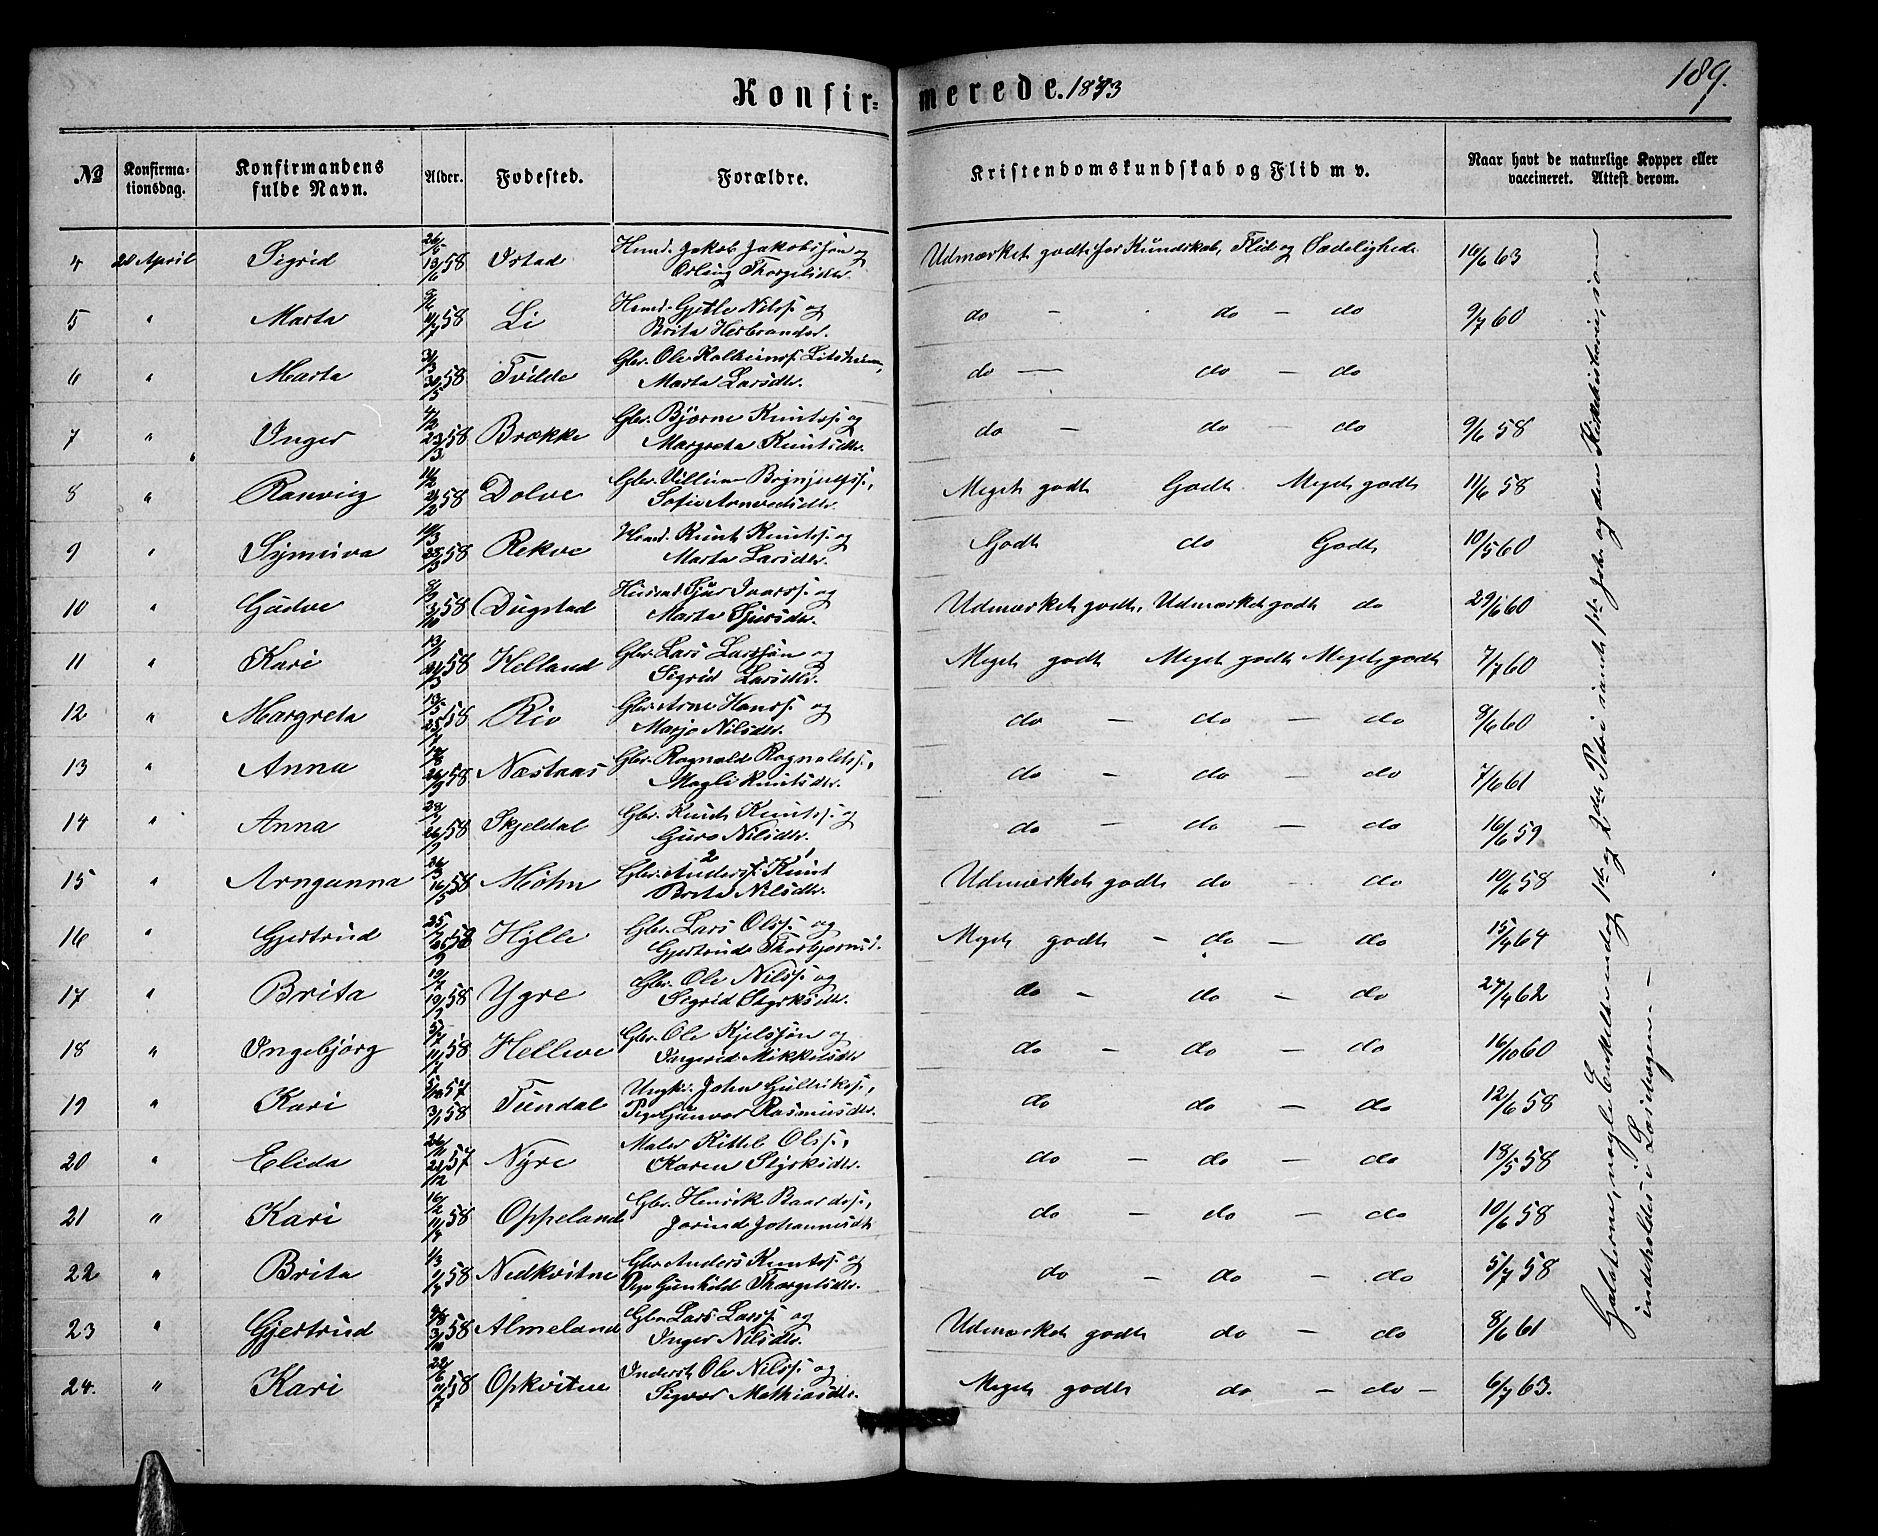 Konfir=merede. 1873
189.
№ Konfirmationsdag. Konfirmandens fulde Navn. Alder. Fødested. Forældre. Kristendomskundskab og Flid m v. Naar havt de naturlige Kopper eller vaccineret. Attest derom.
4 20 April Sigrid 13/6 58 Istad Huusm. Jakob Jakobssøn og Udmærket godt for Kundskab, Flid og Sædelighed 10/6 63
Thorgilsdtr.
5 " Marta 9/6 11/7 58 Li Huusm. Gjetle Nilss. og do - do - do 9/7 60
Brita Herbrandsdr.
6 " Marta 31/3 58 Tvilde Gbr. Ole Kolbeinss. do — do - do
Marta Larsdtr.
7 " Inger 4/2 23/3 58 Brække Gbr. Bjørne Knutss. og do - do - do 9/6 58
Margreta Knutsdtr.
8 " Ranvig 21/2 58 Dolve Gbr. Villum Meget godt Godt Meget godt 11/6 58
Sofie Arnvedsdtr.
9 " Synneva 58 Rekve Huusm. Knut Knutss. og Godt do Godt 10/5 60
Marta Larsdtr.
10 " Gudve 58 Dugstad Huusmd Sjur Ivarss. og Udmærket godt, Udmærket godt do 29/6 60
Marta Sjursdtr.
11 " Kari 21/3 58 Helland Gbr. Lars Larssøn og Meget godt Meget godt Meget godt 7/7 60
Sigrid Larsdtr.
12 " Margreta 13/5 58 Rio Gbr. Arne Hanss. og do - do - do 8/6 60
Marjo Nilsdtr.
13 " Anna 58 Næstaas Gbr. Ragnald Ragnaldss., do - do - do 7/6 61
Magli Knutsdtr.
14 " Anna 58 Skjeldal Gbr. Knut Knutss. og do - do - do 16/6 59
Guro Nilsdtr.
15 " Arnganna 16/5 58 Møhn Gbr. Anderss. Knut Udmærket godt do - do 10/6 58
Brita Nilsdtr.
16 " Gjertrud 58 Hylle Gbr. Lars Olss. og Meget godt - do - do 15/9 64
Gjertrud Thorbjørnsd.
17 " Brita 58 Ygre Gbr. Ole Nilss. og do - do - do 27/9 62
Sigrid Styrksdtr.
18 " Ingebjørg 5/7 11/7 58 Helleve Gbr. Ole Kjelssøn og do - do - do 16/10 60
Ingerid Mikkelsdtr
19 " Kari 57 Tundal Ungk. John Gulleikss., do do - do 12/6 58
3/1 58 Pige Gunvor Rasmusdtr.
20 " Elida 26/11 57 Nyre Maler Kittel Olss., do - do - do 18/5 58
Karen Styrksdtr.
21 " Kari 16/2 58 Oppeland Gbr. Henrik Baardss., do - do - do 10/6 58
Jorind Johannesdtr
22 " Brita 1/3 58 Nedkvitne Gbr. Anders Knutss. og do - do - do 5/7 58
Gunhild Thorgilsdtr.
23 " Gjertrud 3/10 58 Almeland Gbr. Lars Larss. og Udmærket godt do - do 8/6 61
Inger Nilsdtr.
24. " Kari 11/7 58 Opkvitne Inderst Ole Nilss. og Meget godt do - do - 6/7 63.
Sigvor Mathiasdtr.
Galaterne, nogle Enkelte endog 1ste og 2den Petri samt 1ste Joh. og den Kirkehistorie, som
indeholdes i Læsebogen. —